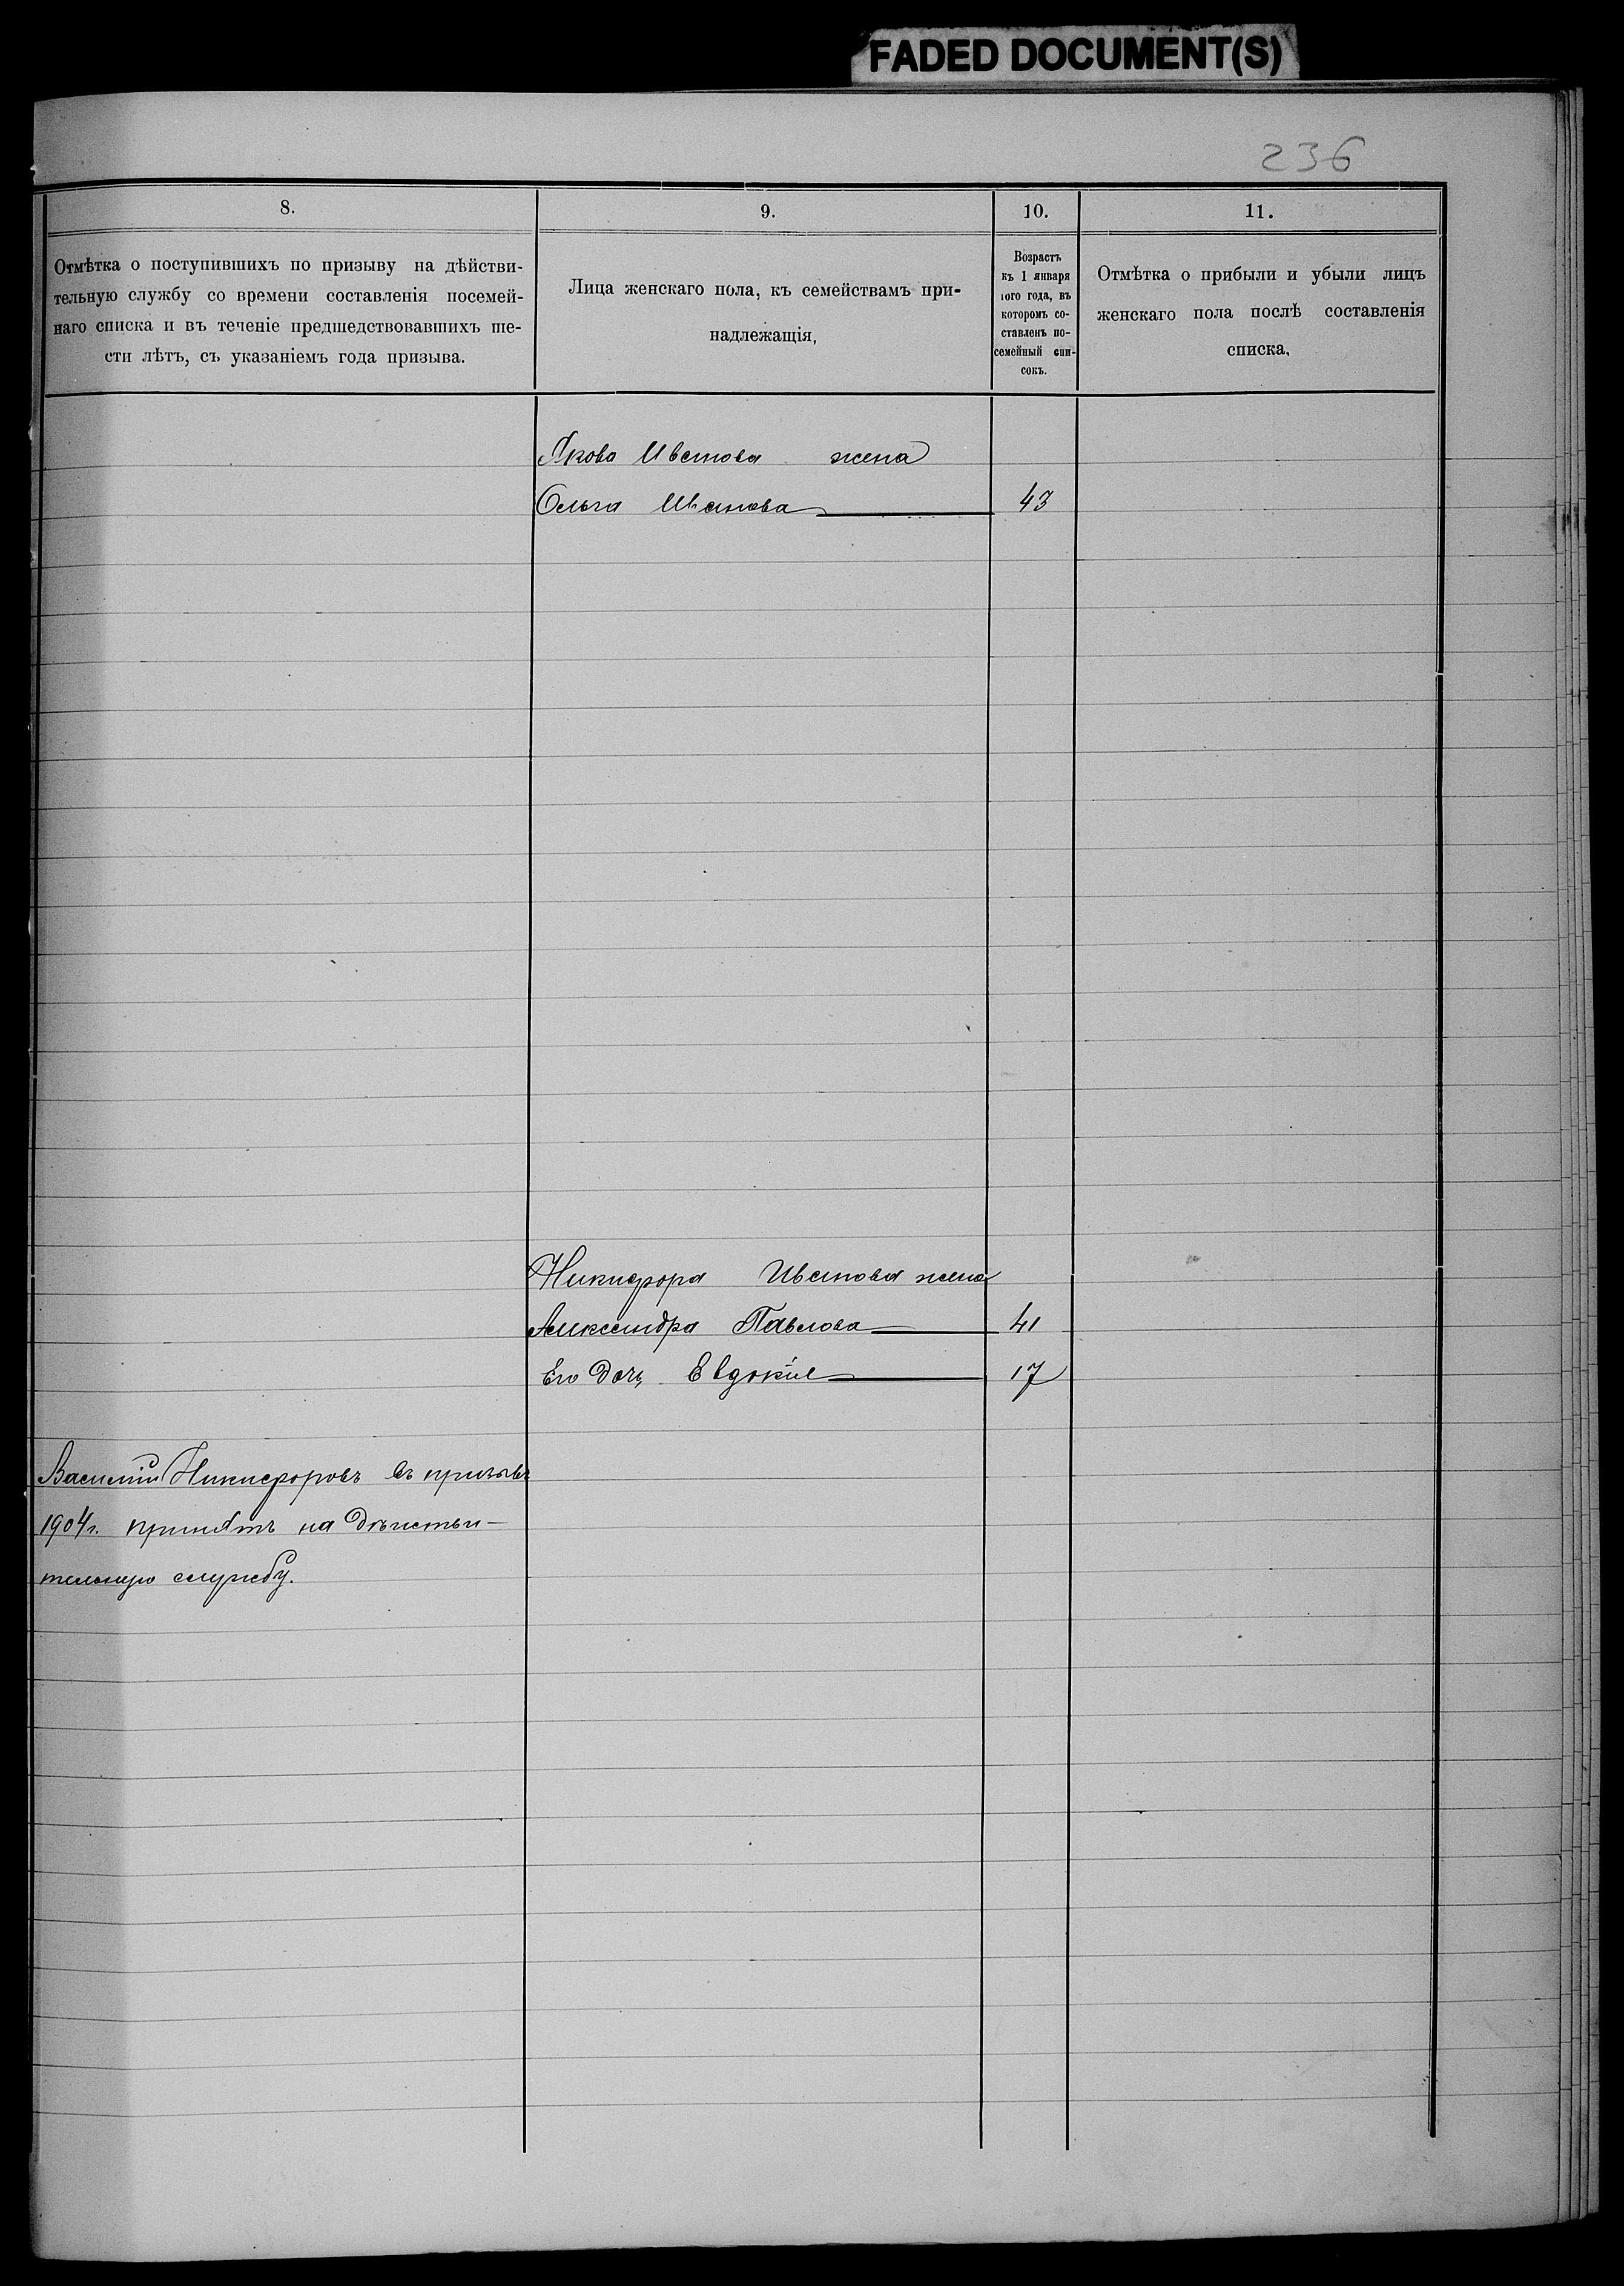 FADED DOCUMENT(S)
236
8.
Отмѣтка о поступившихъ по призыву на дѣйстви-
тельную службу со времени составленія посемей-
наго списка и въ теченіе предшедствовавшихъ ше-
сти лѣтъ, съ указаніемъ года призыва.
9.
Лица женскаго пола, къ семействамъ при-
надлежащія,
10.
Возрастъ
къ 1 января
того года, въ
которомъ со-
ставленъ по-
семейный спи-
сокъ.
11.
Отмѣтка о прибыли и убыли лицъ
женскаго пола послѣ составленія
списка.
Якова Иванова жена
Ольга Иванова 43
Никифора Иванова жена
Александра Павлова 41
Его дочь Евдокія 17
Василій Никифоровъ въ призывъ
1904 г. принятъ на дѣйстви-
тельную службу.